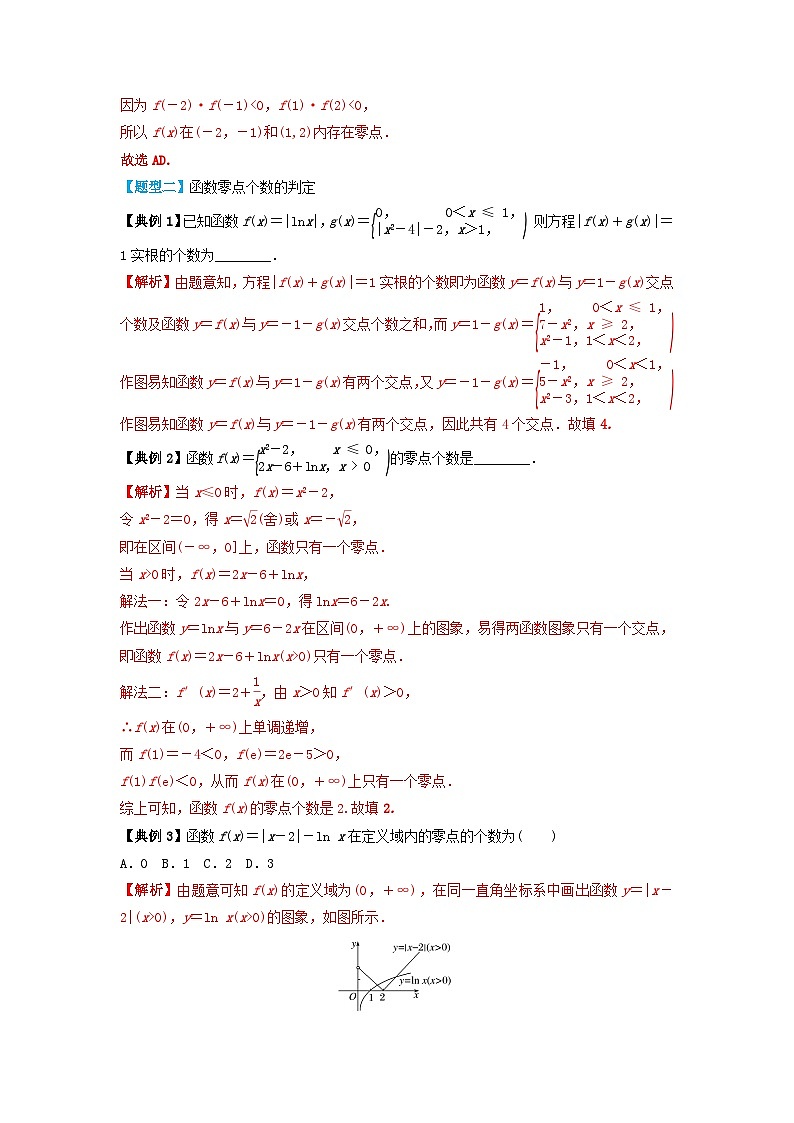 因为 f(－2)·f(－1)<0, f(1)·f(2)<0,
所以 f(x)在(－2, －1)和(1,2)内存在零点.
故选 AD.
【题型二】函数零点个数的判定
【典例 1】已知函数 f(x)＝|lnx|, g(x)＝{0, 0＜x ≤ 1, |x²－4|－2, x＞1, 则方程|f(x)＋g(x)|＝
1 实根的个数为________.
【解析】由题意知,方程|f(x)＋g(x)|＝1 实根的个数即为函数 y＝f(x)与 y＝1－g(x)交点
个数及函数 y＝f(x)与 y＝－1－g(x)交点个数之和,而 y＝1－g(x)＝{1, 0＜x ≤ 1, 7－x², x ≥ 2, x²－1, 1＜x＜2,
作图易知函数 y＝f(x)与 y＝1－g(x)有两个交点,又 y＝－1－g(x)＝{－1, 0＜x＜1, 5－x², x ≥ 2, x²－3, 1＜x＜2,
作图易知函数 y＝f(x)与 y＝－1－g(x)有两个交点, 因此共有 4 个交点. 故填 4.
【典例 2】函数 f(x)＝{x²－2, x ≤ 0, 2x－6＋lnx, x > 0 的零点个数是________.
【解析】当 x≤0 时, f(x)＝x²－2,
令 x²－2＝0, 得 x＝√2(舍)或 x＝－√2,
即在区间(－∞, 0]上, 函数只有一个零点.
当 x>0 时, f(x)＝2x－6＋lnx,
解法一: 令 2x－6＋lnx＝0, 得 lnx＝6－2x.
作出函数 y＝lnx 与 y＝6－2x 在区间(0, ＋∞)上的图象, 易得两函数图象只有一个交点,
即函数 f(x)＝2x－6＋lnx(x>0)只有一个零点.
解法二: f′(x)＝2＋1/x, 由 x＞0 知 f′(x)＞0,
∴f(x)在(0, ＋∞)上单调递增,
而 f(1)＝－4＜0, f(e)＝2e－5＞0,
f(1)f(e)＜0, 从而 f(x)在(0, ＋∞)上只有一个零点.
综上可知, 函数 f(x)的零点个数是 2.故填 2.
【典例 3】函数 f(x)＝|x－2|－ln x 在定义域内的零点的个数为(　　)
A. 0 B. 1 C. 2 D. 3
【解析】由题意可知 f(x)的定义域为(0, ＋∞), 在同一直角坐标系中画出函数 y＝|x－
2|(x>0), y＝ln x(x>0)的图象, 如图所示.
y
y=|x−2|(x>0)
y=ln x(x>0)
O 1 2 x